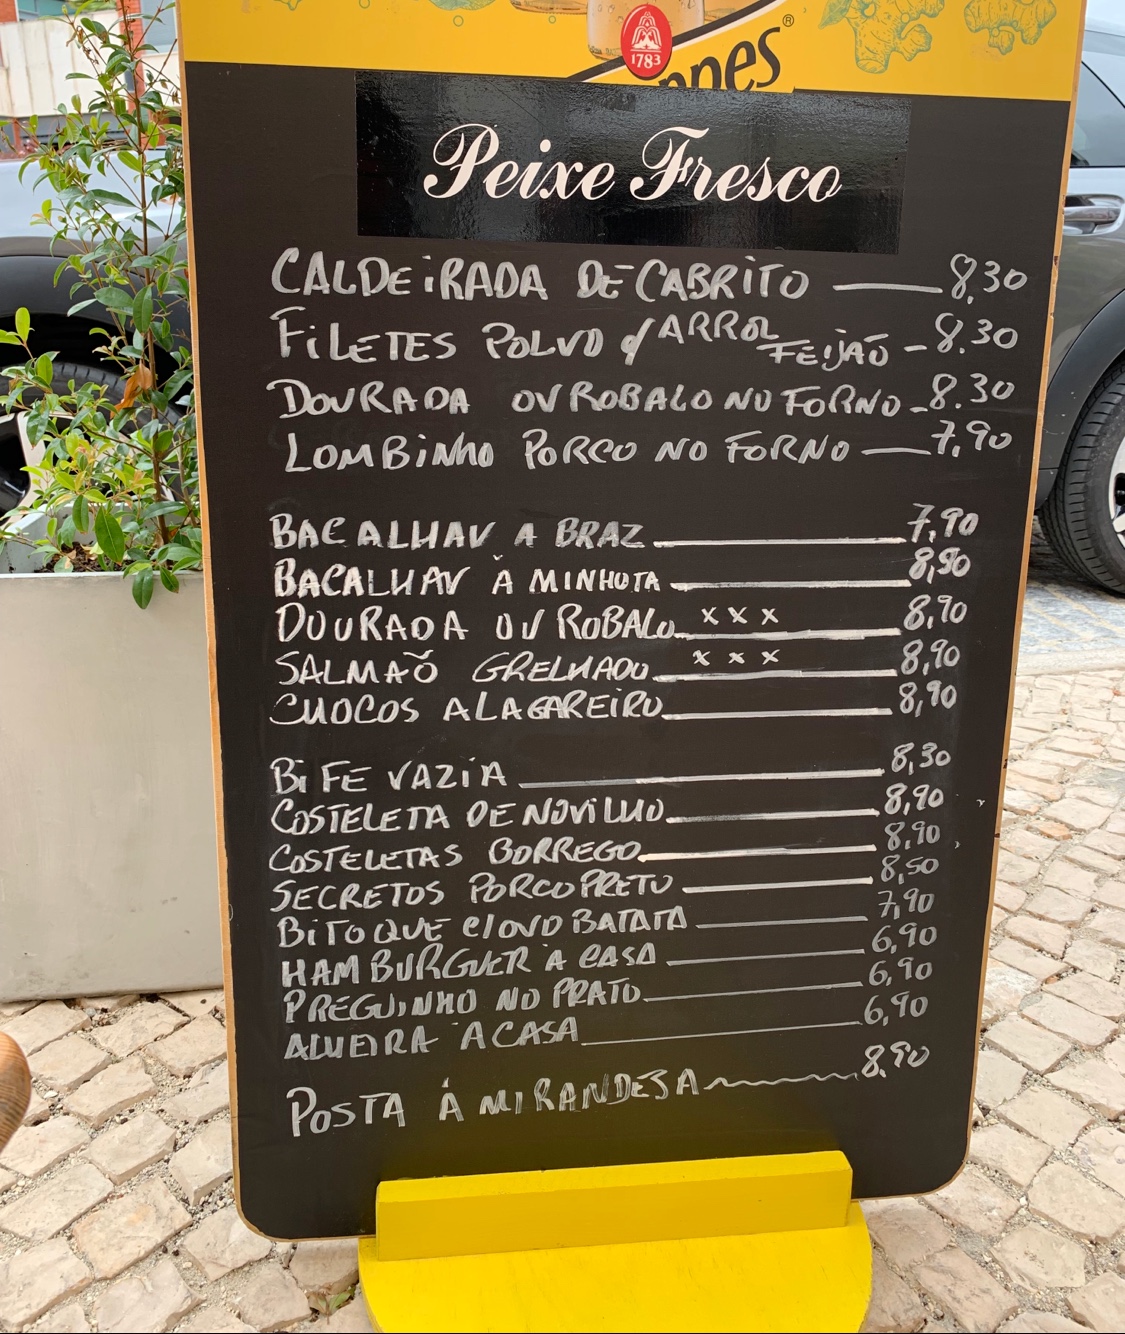 1783
ppes®
Peixe Fresco
CALDEIRADA DE CABRITO — 8,30
FILETES POLVO c/ ARROZ FEIJÃO - 8.30
DOURADA OU ROBALO NO FORNO - 8.30
LOMBINHO PORCO NO FORNO — 7,90
BACALHAU A BRAZ 7,90
BACALHAU À MINHOTA 8,90
DOURADA OU ROBALO x x x 8,90
SALMAÕ GRELHADO x x x 8,90
CHOCOS A LAGAREIRO 8,90
BIFE VAZIA 8,30
COSTELETA DE NOVILHO 8,90
COSTELETAS BORREGO 8,90
SECRETOS PORCO PRETO 8,50
BITOQUE C/OVO BATATA 7,90
HAMBURGUER À CASA 6,90
PREGUINHO NO PRATO 6,90
ALHEIRA À CASA 6,90
POSTA Á MIRANDESA 8.90